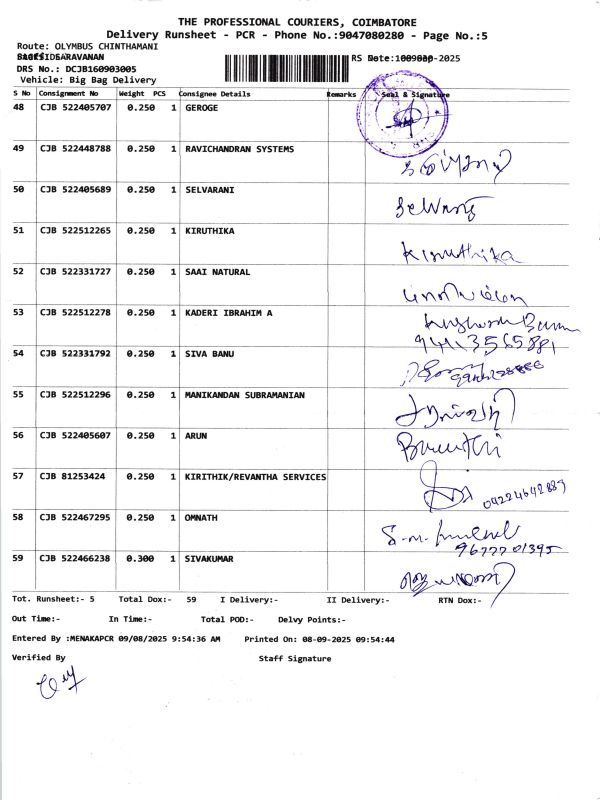 THE PROFESSIONAL COURIERS, COIMBATORE
Delivery Runsheet - PCR - Phone No.:9047080280 - Page No.:5
Route: OLYMBUS CHINTHAMANI
SARAVANAN RS
DRS No.: DCJB160903005
Vehicle: Big Bag Delivery
S No Consignment No Weight PCS Consignee Details Remarks Seal & Signature
48 CJB 522405707 0.250 1 GEROGE
49 CJB 522448788 0.250 1 RAVICHANDRAN SYSTEMS
50 CJB 522405689 0.250 1 SELVARANI
51 CJB 522512265 0.250 1 KIRUTHIKA Kiruthika
52 CJB 522331727 0.250 1 SAAI NATURAL
53 CJB 522512278 0.250 1 KADERI IBRAHIM A
54 CJB 522331792 0.250 1 SIVA BANU
55 CJB 522512296 0.250 1 MANIKANDAN SUBRAMANIAN
56 CJB 522405607 0.250 1 ARUN
57 CJB 81253424 0.250 1 KIRITHIK/REVANTHA SERVICES 04224642889
58 CJB 522467295 0.250 1 OMNATH
9677701395
59 CJB 522466238 0.300 1 SIVAKUMAR
Tot. Runsheet:- 5 Total Dox:- 59 I Delivery:- II Delivery:- RTN Dox:-
Out Time:- In Time:- Total POD:- Delvy Points:-
Entered By :MENAKAPCR 09/08/2025 9:54:36 AM Printed On: 08-09-2025 09:54:44
Verified By Staff Signature